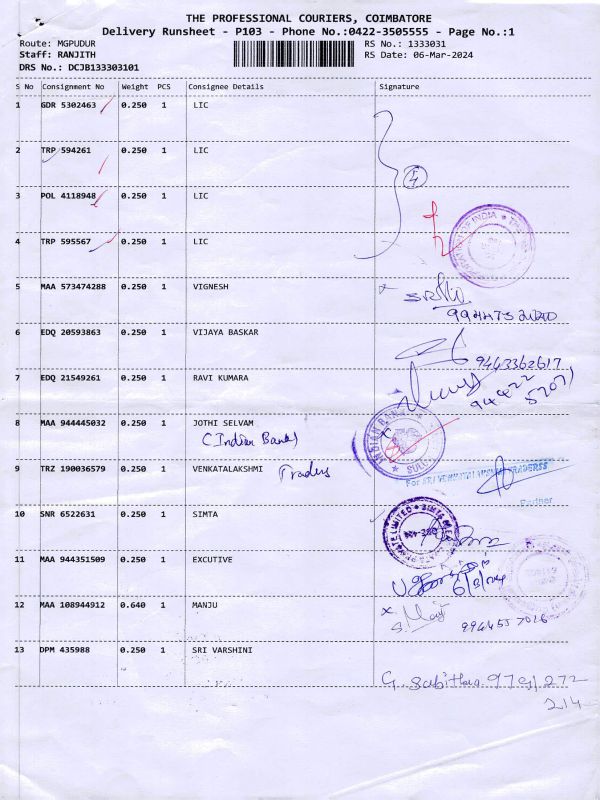 THE PROFESSIONAL COURIERS, COIMBATORE
Delivery Runsheet - P103 - Phone No.:0422-3505555 - Page No.:1
Route: MGPUDUR RS No.: 1333031
Staff: RANJITH RS Date: 06-Mar-2024
DRS No.: DCJB133303101
S No Consignment No Weight PCS Consignee Details Signature
1 GDR 5302463 0.250 1 LIC
2 TRP 594261 0.250 1 LIC
3 POL 4118948 0.250 1 LIC
4
4 TRP 595567 0.250 1 LIC
5 MAA 573474288 0.250 1 VIGNESH
6 EDQ 20593863 0.250 1 VIJAYA BASKAR
9443362617
7 EDQ 21549261 0.250 1 RAVI KUMARA
8 MAA 944445032 0.250 1 JOTHI SELVAM
(Indian Bank)
INDIAN BANK
SULU
9 TRZ 190036579 0.250 1 VENKATALAKSHMI Traders
For SRI VENKATALAKSHMI TRADERSS
Partner
10 SNR 6522631 0.250 1 SIMTA
11 MAA 944351509 0.250 1 EXCUTIVE
6/3/24
12 MAA 108944912 0.640 1 MANJU
9944557026
13 DPM 435988 0.250 1 SRI VARSHINI
G. Sabitha 979/272
214